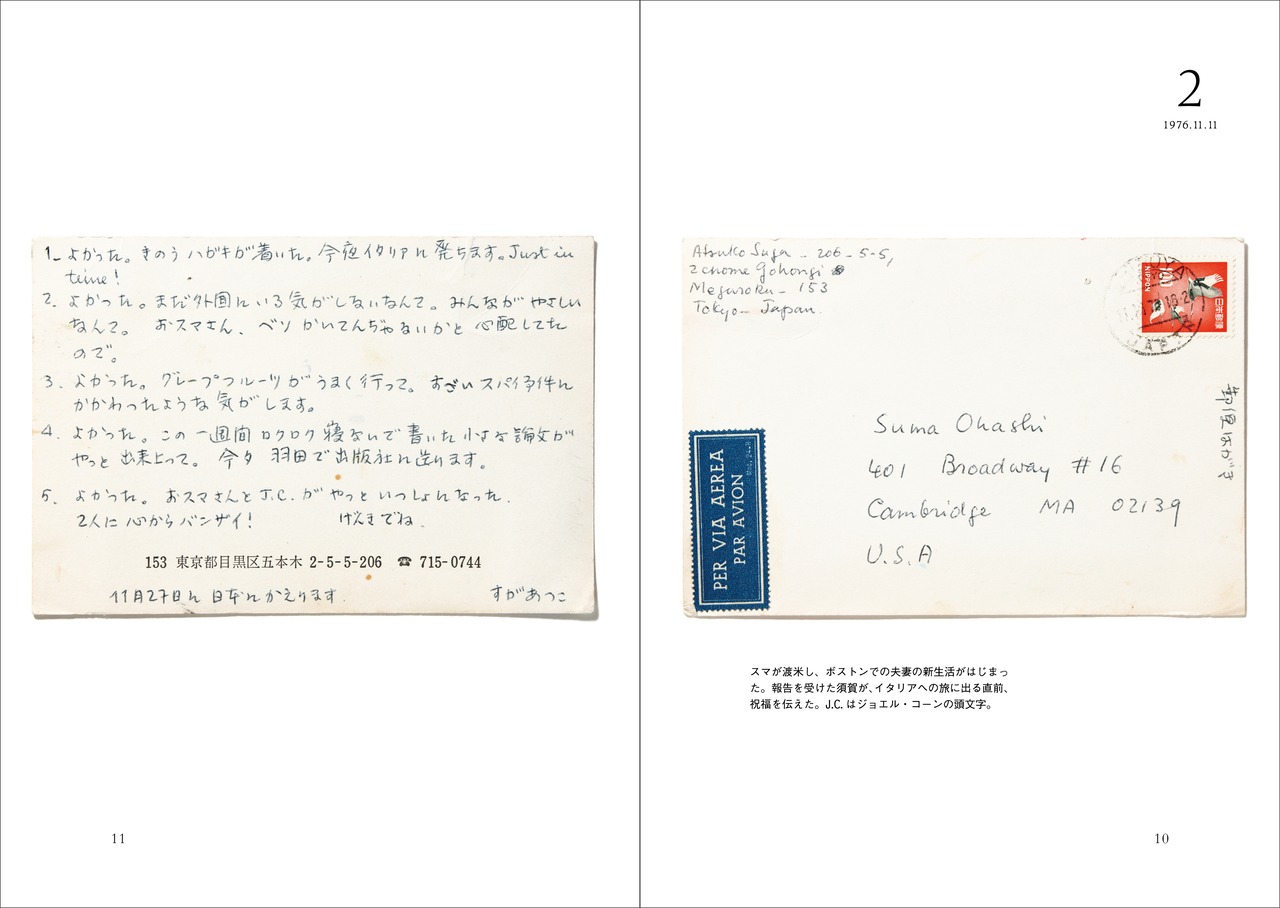 2
1976.11.11
Atsuko Suga - 206 - 5-5,
2 chome Gohongi
Meguroku - 153
Tokyo - Japan.
NIPPON
100
日本郵便
JAPAN
郵便はがき
Suma Ohashi
401 Broadway #16
Cambridge MA 02139
U.S.A
PER VIA AEREA
PAR AVION
スマが渡米し、ボストンでの夫妻の新生活がはじまっ
た。報告を受けた須賀が、イタリアへの旅に出る直前、
祝福を伝えた。J.C. はジョエル・コーンの頭文字。
10
1_ よかった。きのうハガキが着いた。今夜イタリアに発ちます。Just in
time!
2. よかった。まだ外国にいる気がしないなんて。みんながやさしい
なんて。 おスマさん、ベソかいてんぢゃないかと心配してた
ので。
3. よかった。グレープフルーツがうまく行って。すごいスパイ事件に
かかわったような気がします。
4. よかった。この一週間ロクロク寝ないで書いた小さな論文が
やっと出来上って。今夕羽田で出版社に送ります。
5. よかった。おスマさんとJ.C.がやっといっしょになった.
2人に心からバンザイ! げんきでね.
153 東京都目黒区五本木 2-5-5-206 ☎ 715-0744
11月27日に日本にかえります.
すがあつこ
11